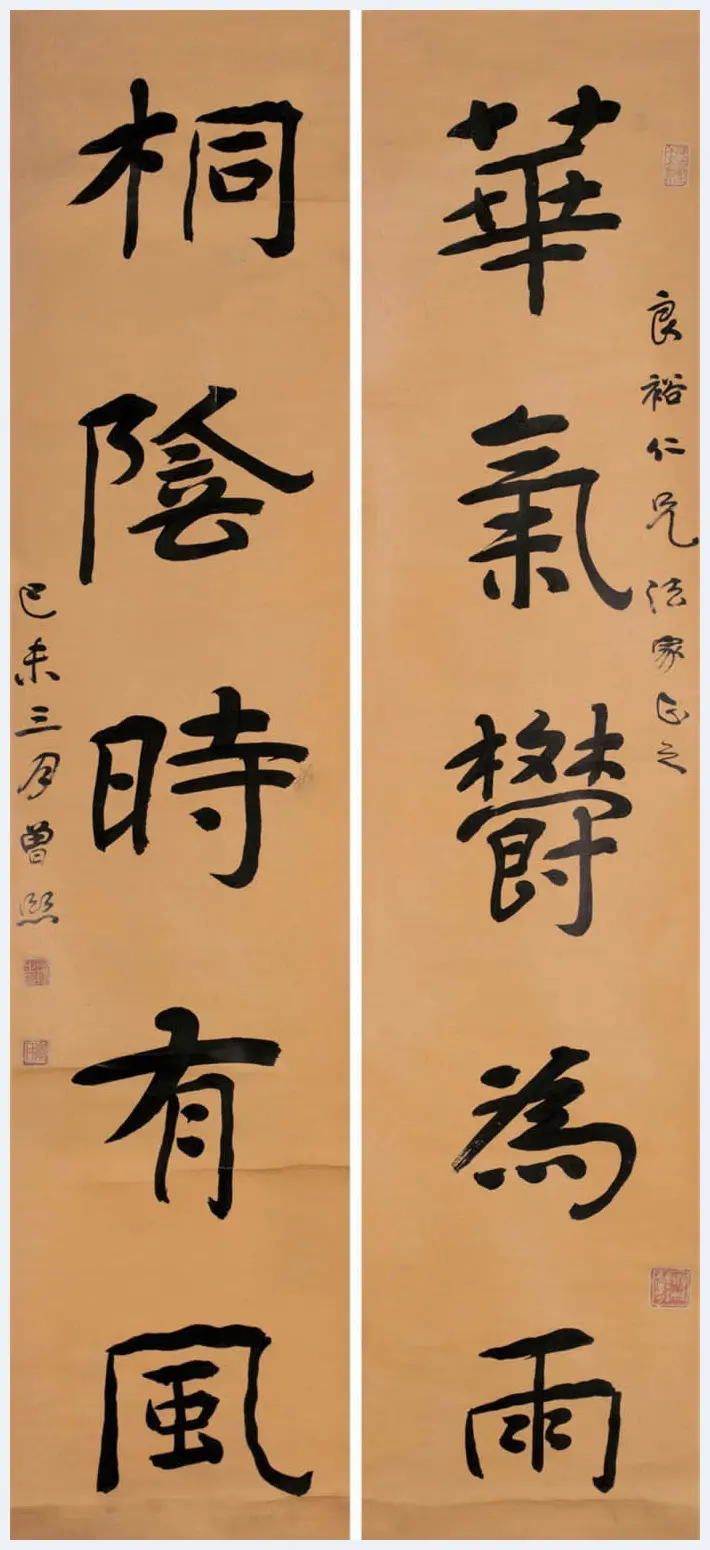 良裕仁兄法家正之
華氣欝為雨
桐陰時有風
己未三月曾熙